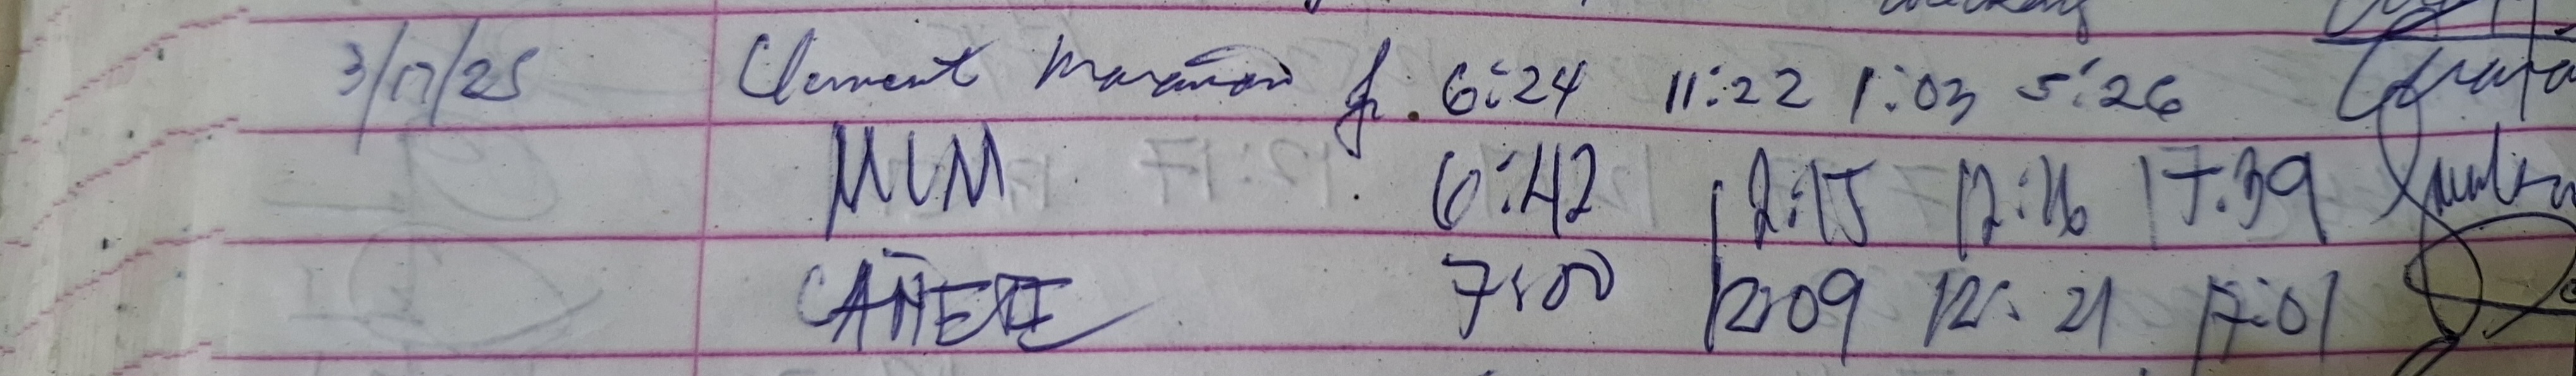 3/17/25 Clement Marañon Jr. 6:24 11:22 1:03 5:26
MLM 6:42 12:15 12:16 17:39
CAÑETE 7:00 12:09 12:21 17:01